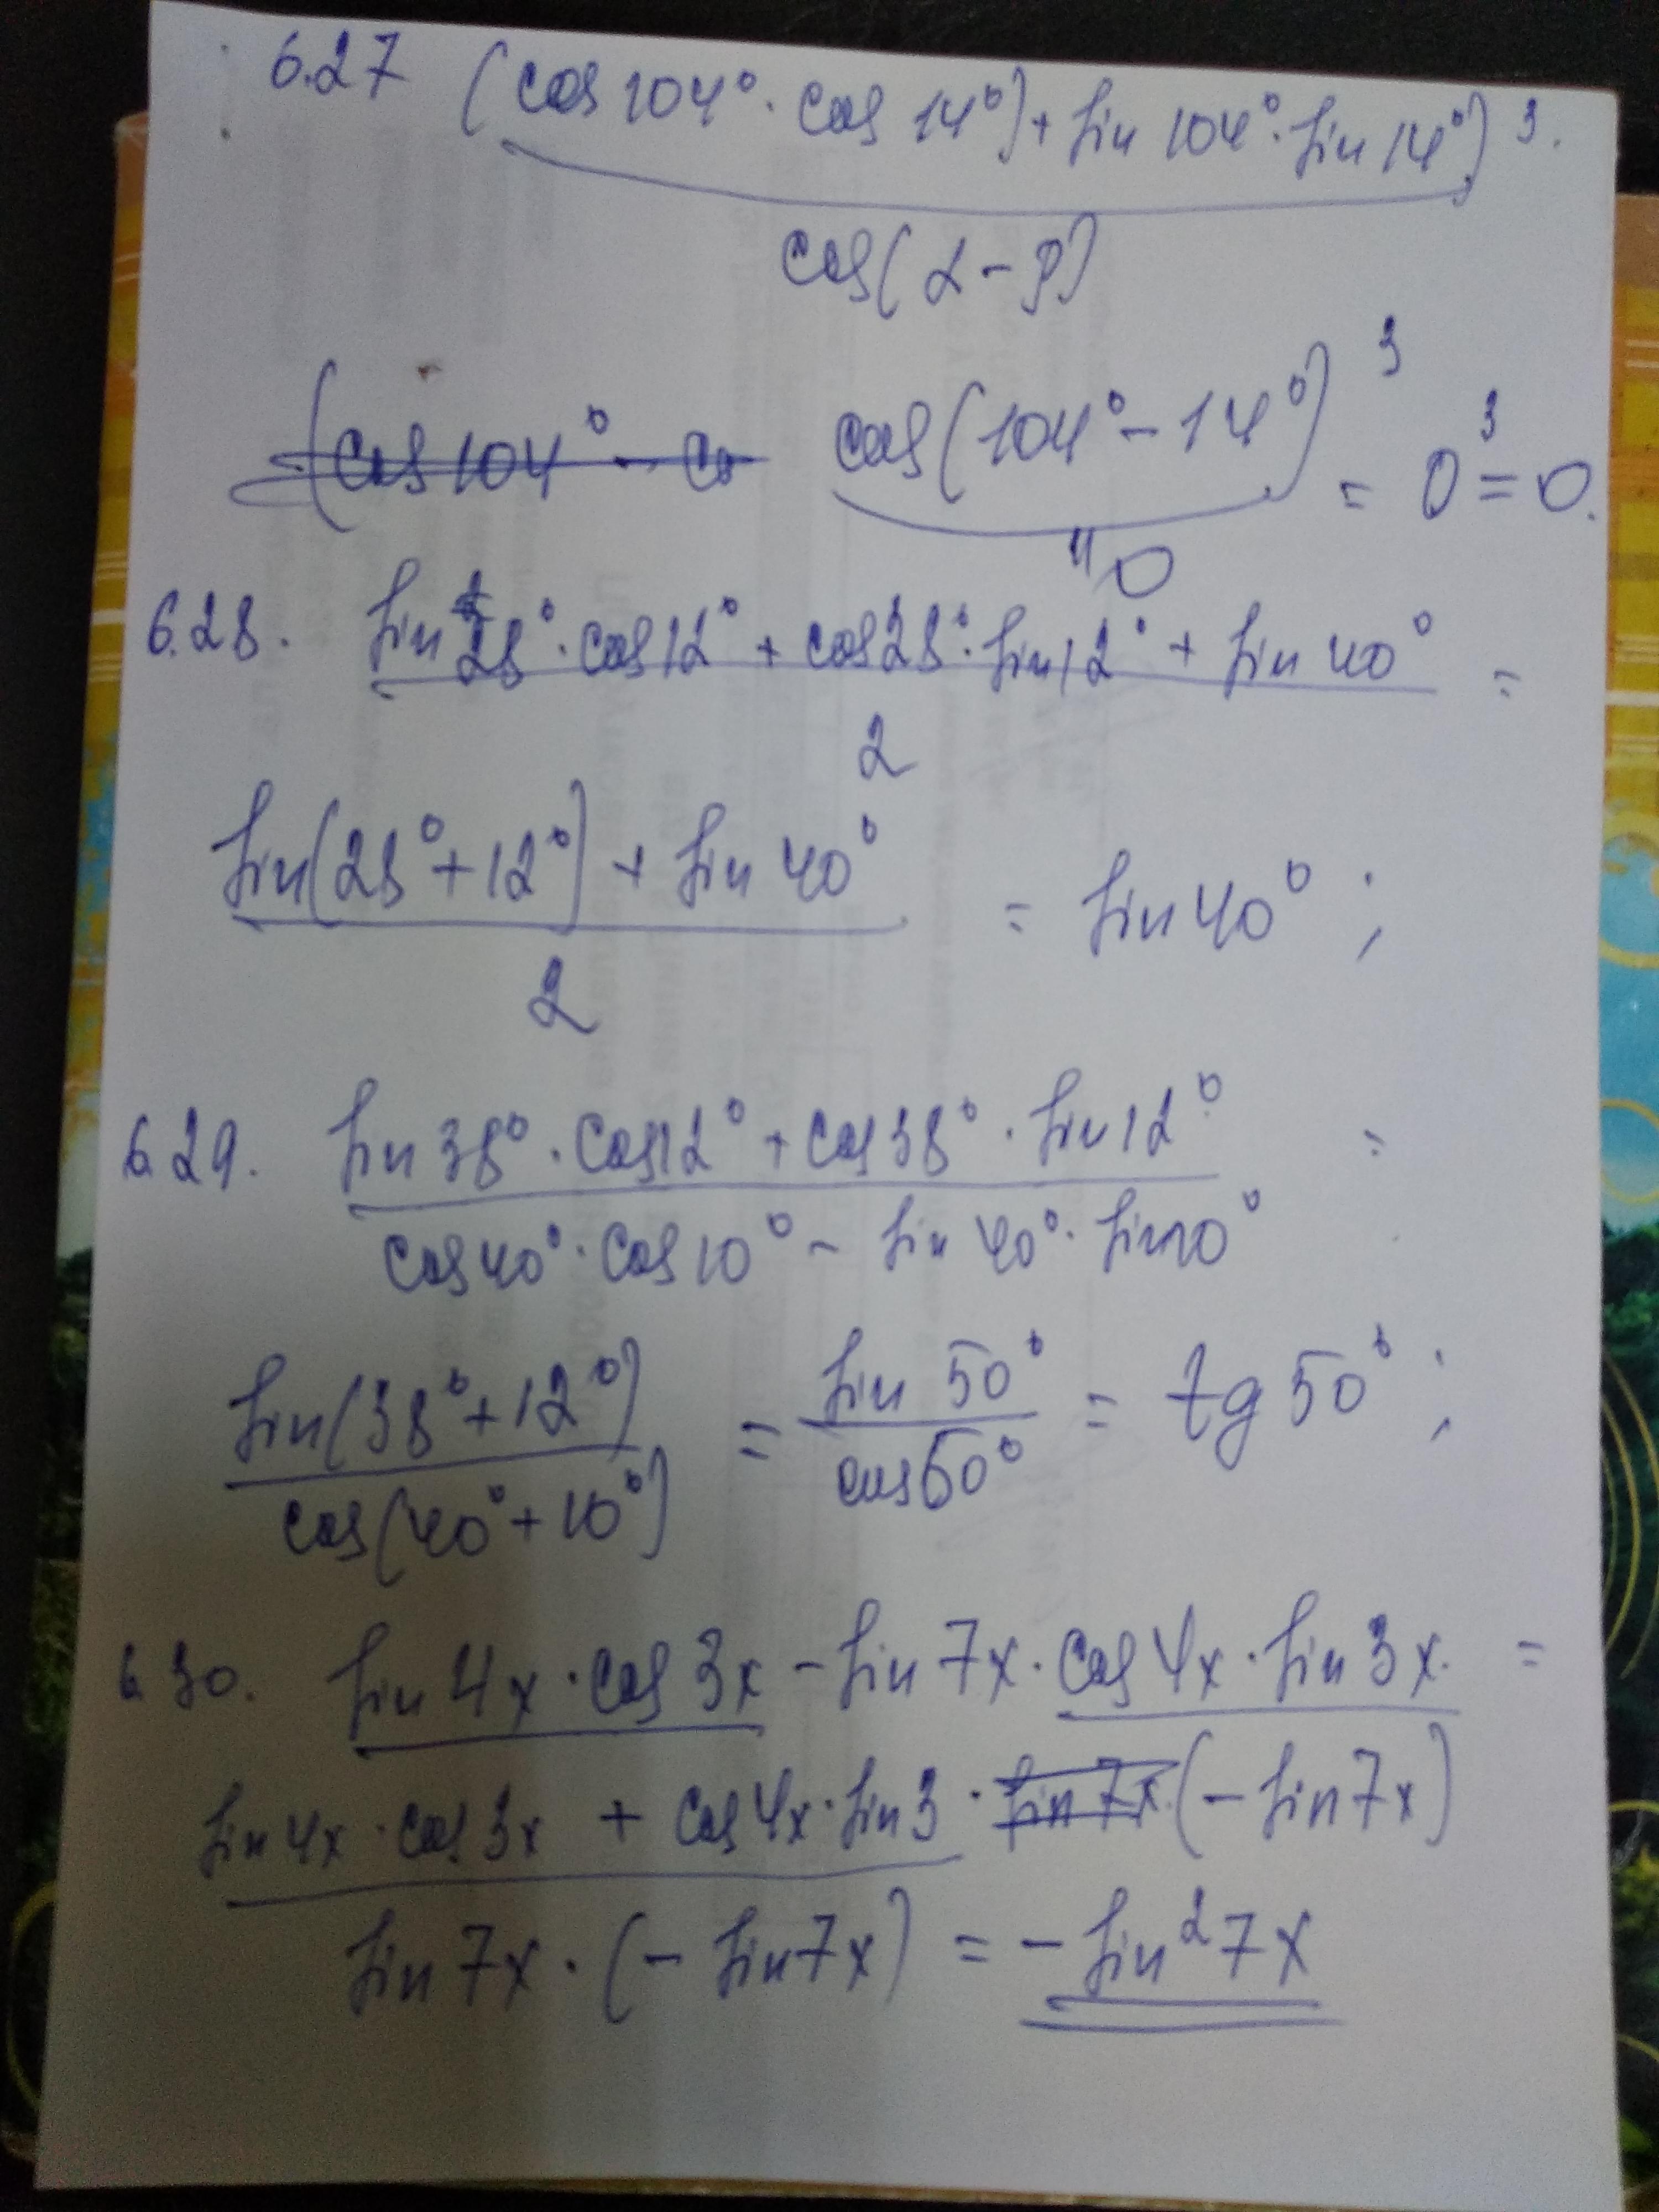 6.27 (cos 104° · cos 14°) + sin 104° · sin 14°)³.
cos(α - β)
cos(104° - 14°)³ = 0³ = 0.
" 0
6.28. sin 28° · cos 12° + cos 28° · sin 12° + sin 40° =
2
sin(28° + 12°) + sin 40° = sin 40° ;
2
6.29. sin 38° · cos 12° + cos 38° · sin 12° =
cos 40° · cos 10° - sin 40° · sin 10°
sin(38° + 12°) = sin 50° = tg 50° ;
cos(40° + 10°) cos 50°
6.30. sin 4x · cos 3x - sin 7x · cos 4x · sin 3x. =
sin 4x · cos 3x + cos 4x · sin 3 · sin 7x (- sin 7x)
sin 7x · (- sin 7x) = - sin² 7x